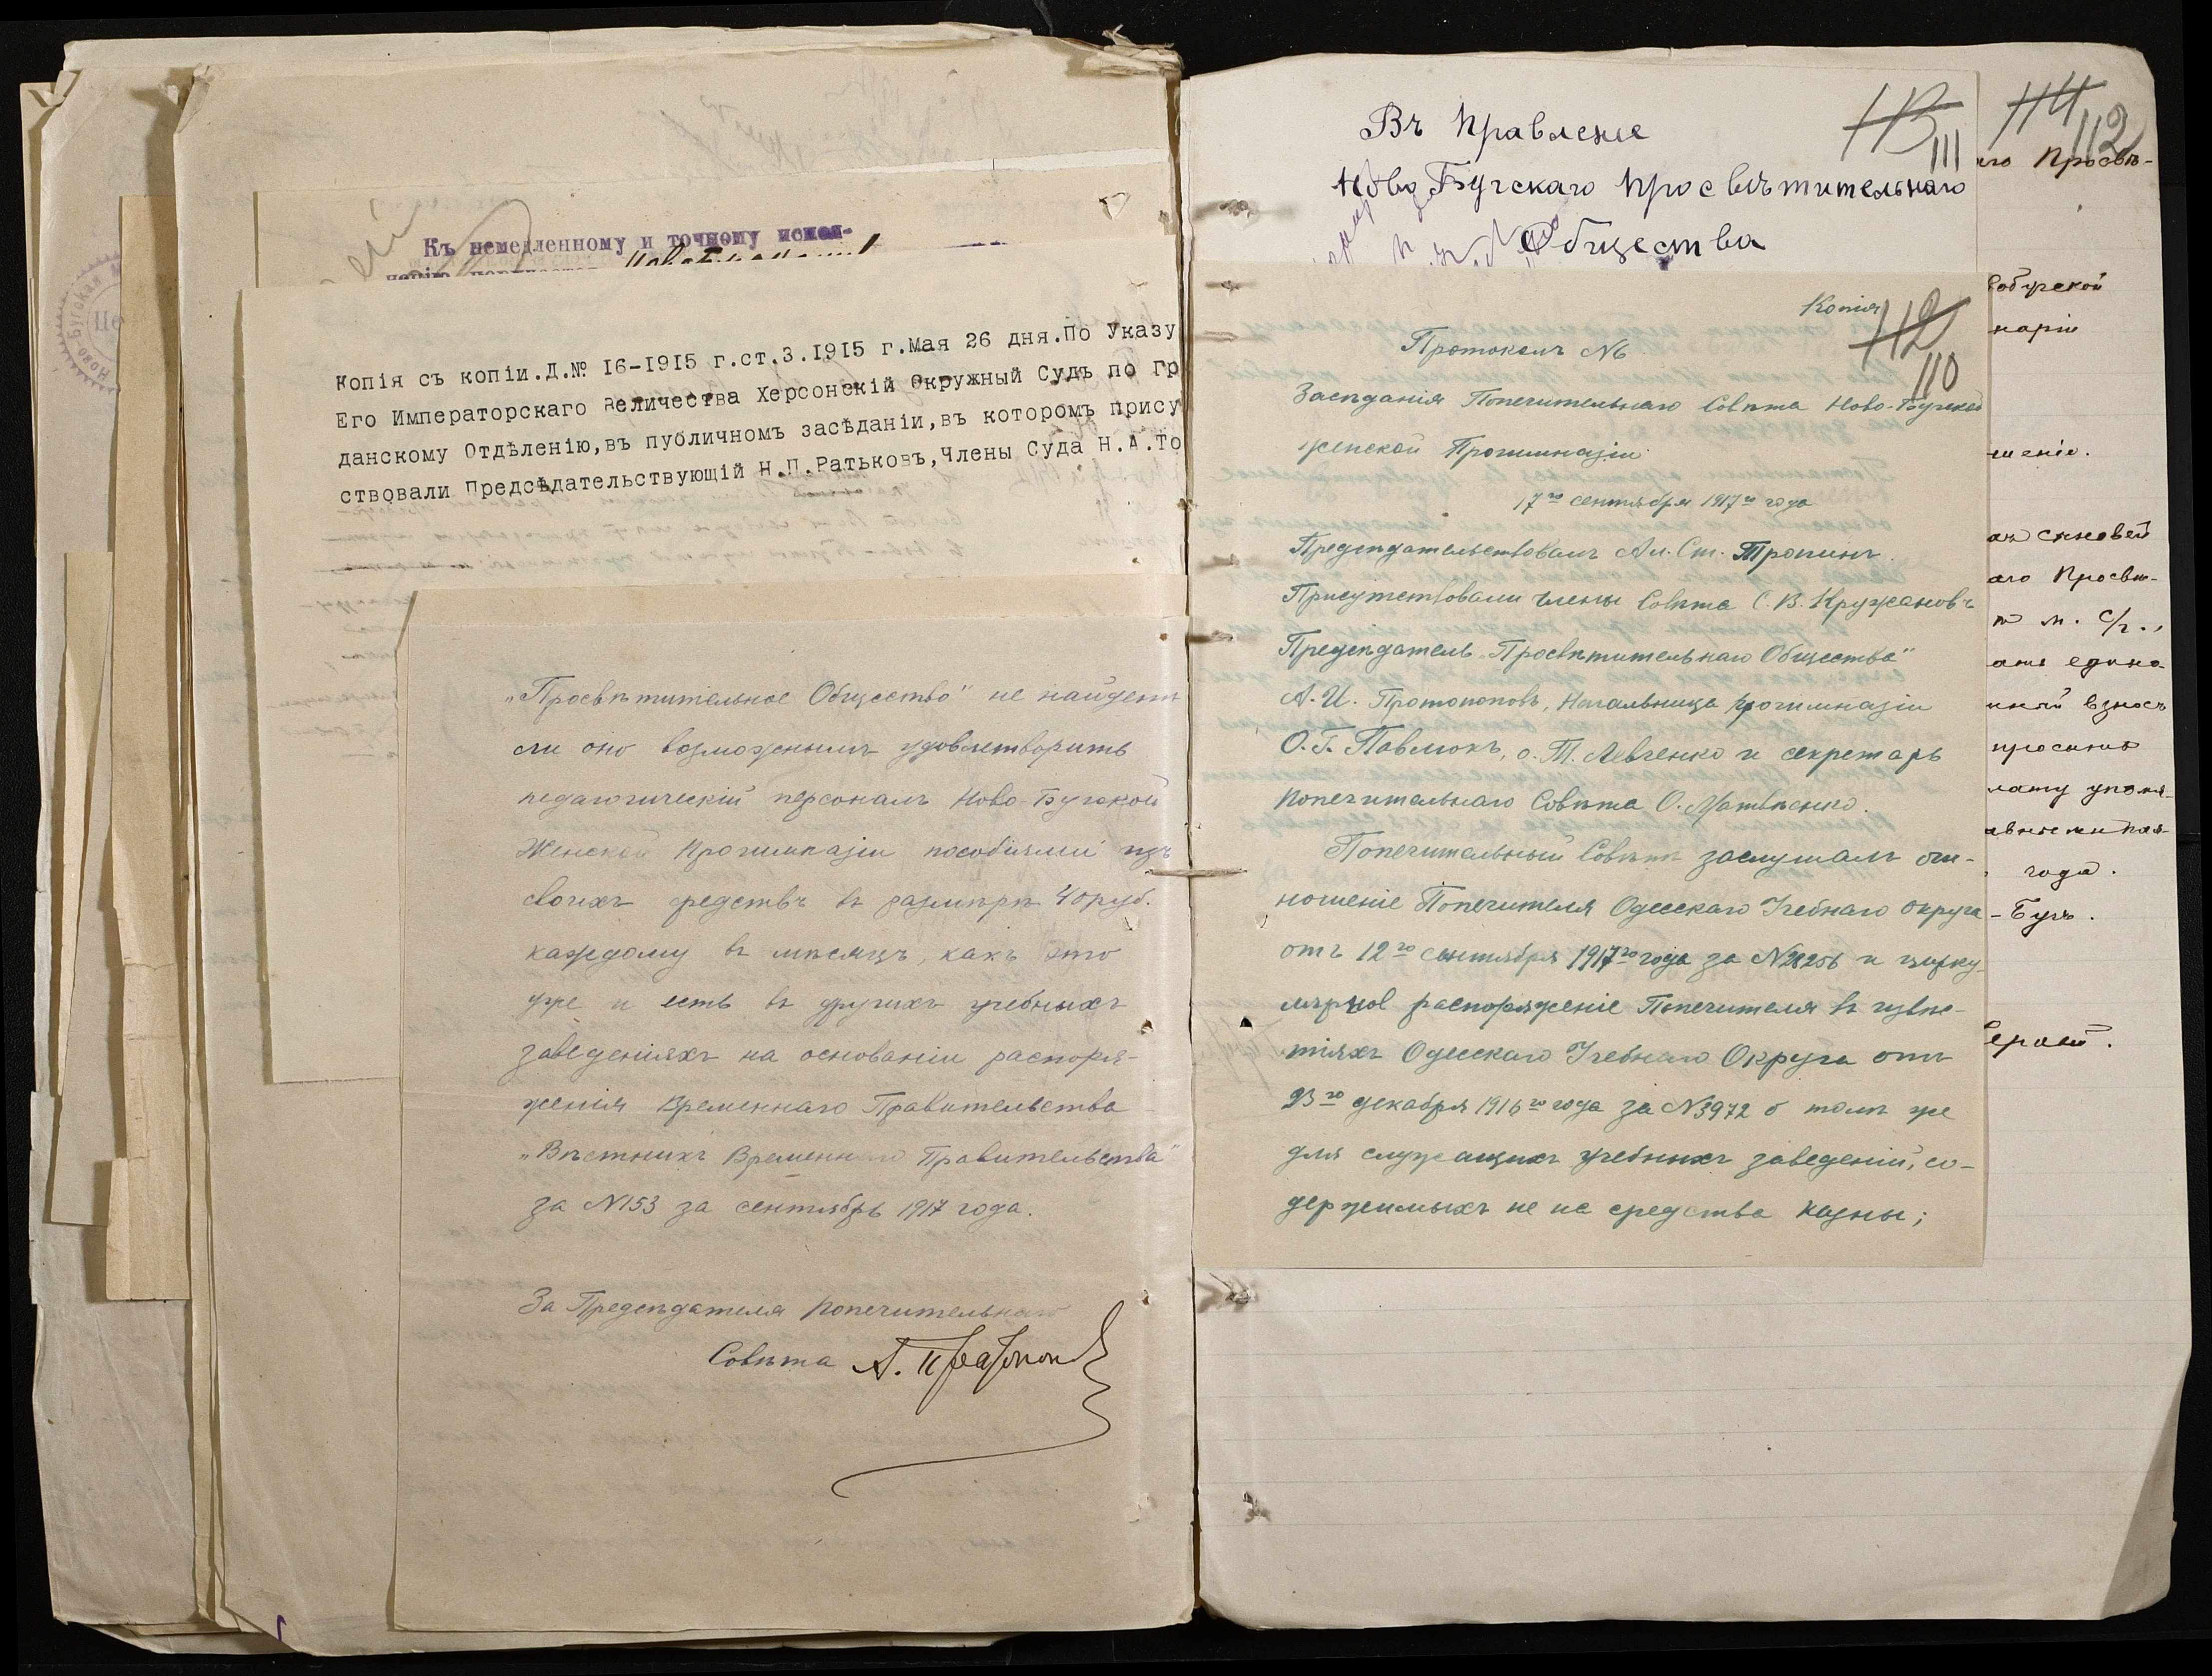 Къ немедленному и точному испол-
Копія съ копіи.Д.№ 16-1915 г.ст.3.1915 г.Мая 26 дня.По Указу
Его Императорскаго Величества Херсонскій Окружный Судъ по Гр
данскому Отдѣленію,въ публичномъ засѣданіи,въ которомъ прису
ствовали Предсѣдательствующій Н.П.Ратьковъ,Члены Суда Н.А.То
„Просвѣтительное Общество" не найдетъ
ли оно возможнымъ удовлетворить
педагогическій персоналъ Ново-Бугской
Женской Прогимназіи пособіями изъ
своихъ средствъ въ размѣрѣ 40 руб.
каждому въ мѣсяцъ, какъ это
уже и есть въ другихъ учебныхъ
заведеніяхъ на основаніи распоря-
женія Временнаго Правительства
„Вѣстникъ Временнаго Правительства"
за №153 за сентябрь 1917 года.
За Предсѣдателя Попечительнаго
Совѣта
Въ Правленіе
Ново Бугскаго Просвѣтительнаго
Общества
113
111
Копія
112
110
Протоколъ №
Засѣданія Попечительнаго Совѣта Ново-Бугской
женской Прогимназіи
17го сентября 1917го года
Предсѣдательствовалъ Ал. Ст. Тропинъ.
Присутствовали члены Совѣта С. В. Кружановъ
Предсѣдатель „Просвѣтительнаго Общества"
А. И. Протопоповъ, Начальница Прогимназіи
О. Г. Павлюкъ, о. Т. Левченко и секретарь
Попечительнаго Совѣта О. Матвѣенко.
Попечительный Совѣтъ заслушалъ от-
ношеніе Попечителя Одесскаго Учебнаго Округа
отъ 12го сентября 1917го года за №28256 и цирку-
лярное распоряженіе Попечителя въ извѣс-
тіяхъ Одесскаго Учебнаго Округа отъ
23го декабря 1916го года за №3972 о томъ же
для служащихъ учебныхъ заведеній, со-
держимыхъ не на средства казны;
114
112
аго Просвѣ-
обугской
наріи
шеніе.
сыновей
аго Просвѣ-
т м. с/г.,
взносъ
просимъ
лату
года.
-Бугъ.